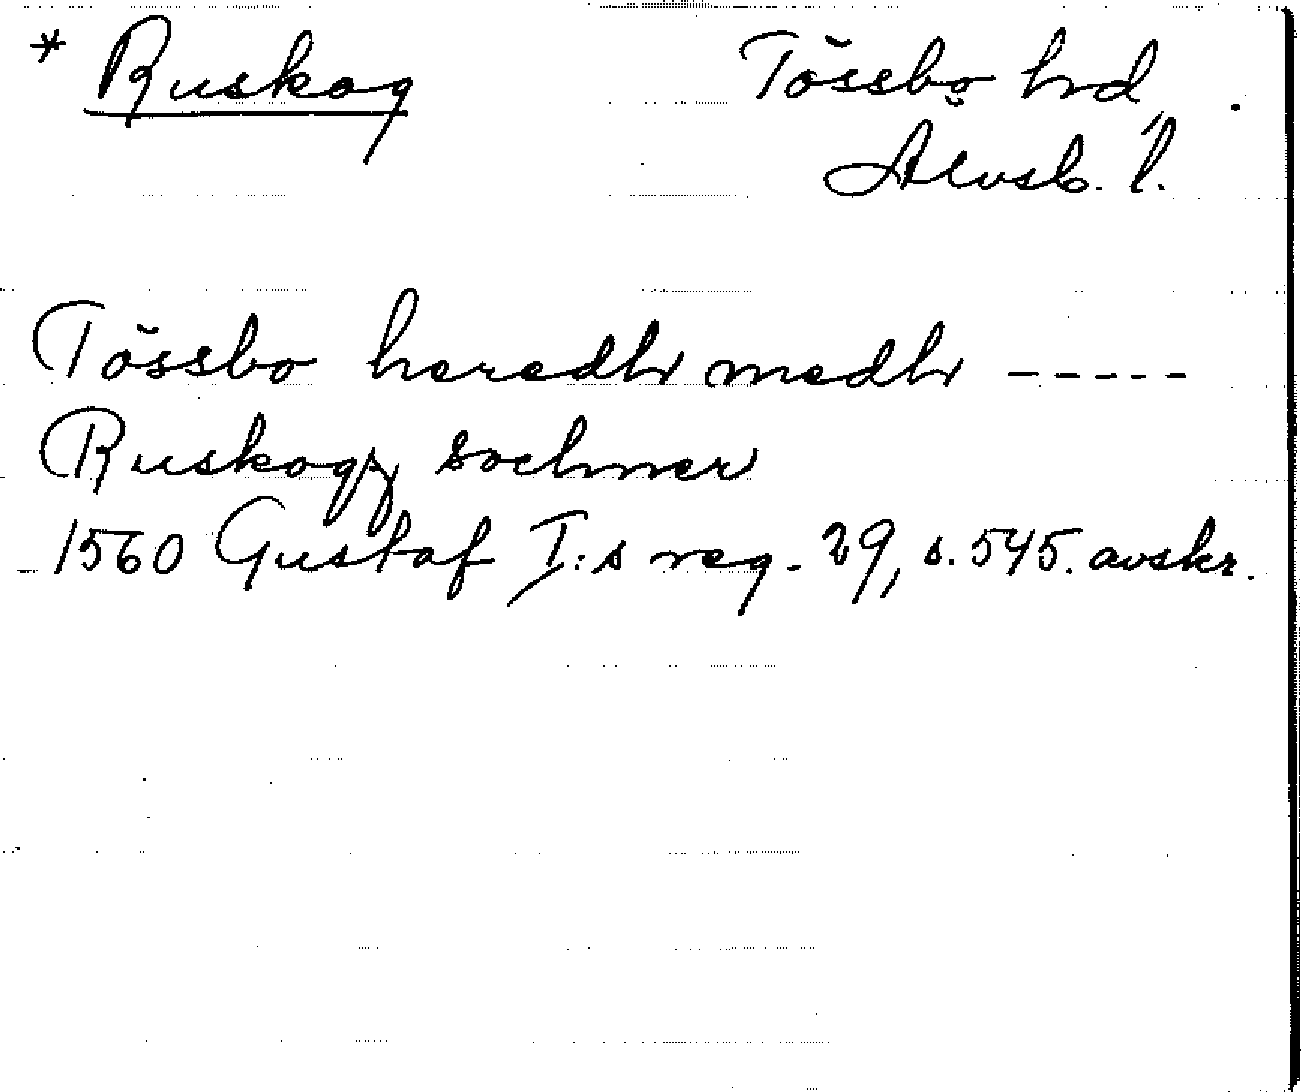 * Ruskog Tössbo hrd,
Älvsb. l.
Tössbo heredh medh -----
Ruskogz sochner
1560 Gustaf I:s reg. 29, s. 545. avskr.